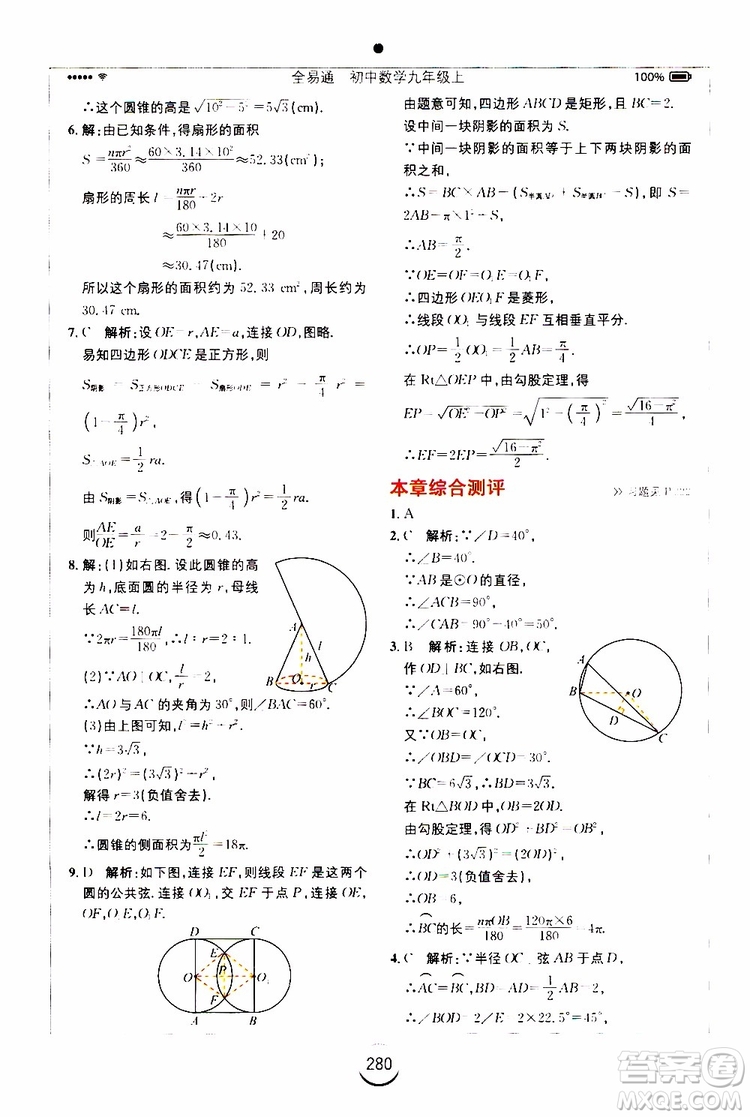 全易通 初中数学九年级上
100%
∴这个圆锥的高是√(10²-5²)=5√3(cm).
6. 解:由已知条件,得扇形的面积
S=nπr²/360≈60×3.14×10²/360≈52.33(cm²),
扇形的周长 l=nπr/180+2r
≈60×3.14×10/180+2×10
≈30.47(cm).
所以这个扇形的面积约为52.33 cm²,周长约为
30.47 cm.
7. C 解析:设OE=r,AE=a,连接OD,图略.
易知四边形ODCE是正方形,则
S阴影=S正方形ODCE-S扇形ODE=r²-π/4 r²=
(1-π/4)r²,
S△AOE=1/2 ra.
由S阴影=S△AOE,得(1-π/4)r²=1/2 ra,
则AE/OE=a/r=2-π/2≈0.43.
8. 解:(1)如右图.设这个圆锥的高
为h,底面圆的半径为r,母线
长AC=l.
∵2πr=180πl/180,∴l∶r=2∶1.
(2)∵AO⊥OC,r/l=1/2,
∴AO与AC的夹角为30°,∴∠BAC=60°.
(3)由上图可知,l²=h²+r²,
∵h=3√3,
∴(2r)²=(3√3)²+r²,
解得r=3(负值舍去).
∴l=2r=6.
∴圆锥的侧面积为πl²/2=18π.
A
l
h
B
O
r
C
9. D 解析:如下图,连接EF,则线段EF是这两个
圆的公共弦.连接OO₁,交EF于点P,连接OE,
OF,O₁E,O₁F.
D
C
E
O
P
O₁
F
A
B
由题意可知,四边形ABCD是矩形,且BC=2.
设中间一块阴影的面积为S.
∵中间一块阴影的面积等于上下两块阴影的面
积之和,
∴S=BC×AB-(S半圆+S半圆-S),即S=
2AB-π×1²+S.
∴AB=π/2.
∵OE=OF=O₁E=O₁F,
∴四边形OEO₁F是菱形,
∴线段OO₁与线段EF互相垂直平分.
∴OP=1/2 OO₁=1/2 AB=π/4.
在Rt△OEP中,由勾股定理,得
EP=√(OE²-OP²)=√(1²-(π/4)²)=√(16-π²)/4,
∴EF=2EP=√(16-π²)/2.
本章综合测评
1. A
2. C 解析:∵∠D=40°,
∴∠B=40°.
∵AB是⊙O的直径,
∴∠ACB=90°,
∴∠CAB=90°-40°=50°.
3. B 解析:连接OB,OC,
作OD⊥BC,如右图.
∵∠A=60°,
∴∠BOC=120°.
又∵OB=OC,
∴∠OBD=∠OCD=30°.
∵BC=6√3,∴BD=3√3.
在Rt△BOD中,OB=2OD,
由勾股定理,得OD²+BD²=OB²,
∴OD²+(3√3)²=(2OD)²,
∴OD=3(负值舍去).
∴OB=6,
∴BC的长=nπOB/180=120π×6/180=4π.
A
B
O
D
C
4. C 解析:∵半径OC⊥弦AB于点D,
∴AC=BC,
∴∠E=1/2∠BOC=22.5°,
∴∠BOC=2∠E=2×22.5°=45°.
280
答案圈
MXQE.COM